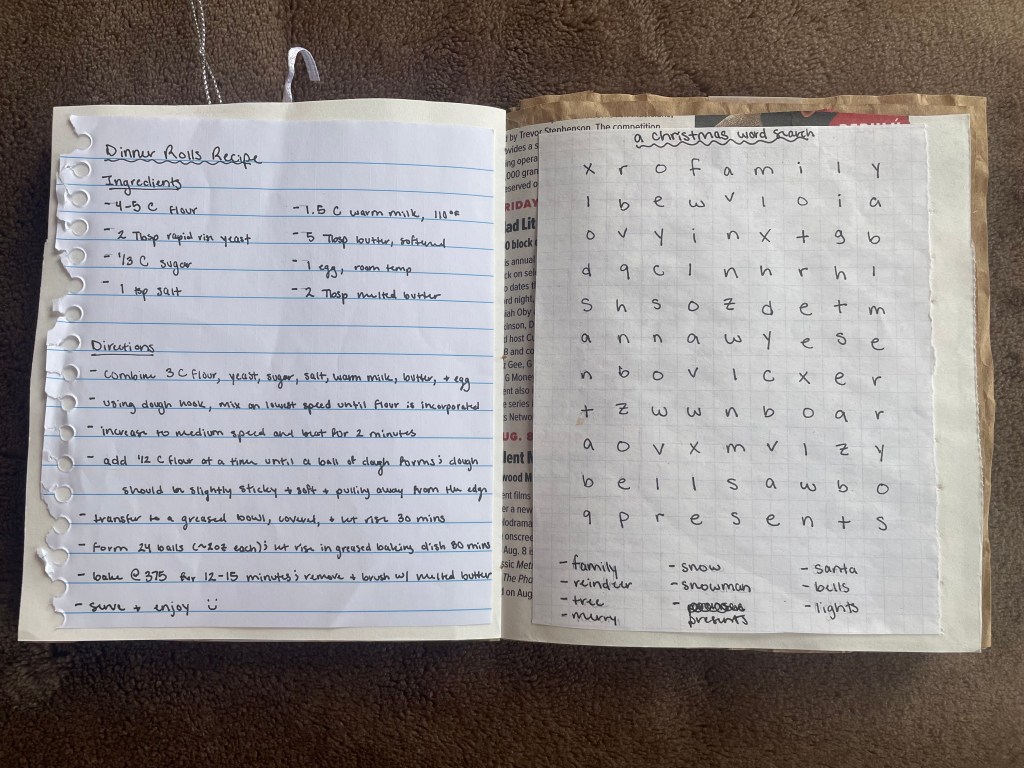 Dinner Rolls Recipe
Ingredients
- 4-5 C flour
- 2 Tbsp rapid rise yeast
- 1/3 C sugar
- 1 tsp salt
- 1.5 C warm milk, 110°F
- 5 Tbsp butter, softened
- 1 egg, room temp
- 2 Tbsp melted butter
Directions
- combine 3 C flour, yeast, sugar, salt, warm milk, butter, + egg
- using dough hook, mix on lowest speed until flour is incorporated
- increase to medium speed and beat for 2 minutes
- add 1/2 C flour at a time until a ball of dough forms; dough
should be slightly sticky + soft + pulling away from the edge
- transfer to a greased bowl, covered, + let rise 30 mins
- form 24 balls (~2oz each); let rise in greased baking dish 80 mins
- bake @ 375 for 12-15 minutes; remove + brush w/ melted butter
- serve + enjoy ü
by Trevor Stephenson. The competition
FRIDAY
UG. 8
Aug. 8
The Pho
on Aug
a christmas word search
x r o f a m i l y
l b e w v l o i a
o v y i n x t g b
d q c l n h r h l
s h s o z d e t m
a n n a w y e s e
n b o v l c x e r
t z w w n b o a r
a o v x m v l z y
b e l l s a w b o
q p r e s e n t s
- family
- reindeer
- tree
- merry
- snow
- snowman
- presents
- santa
- bells
- lights